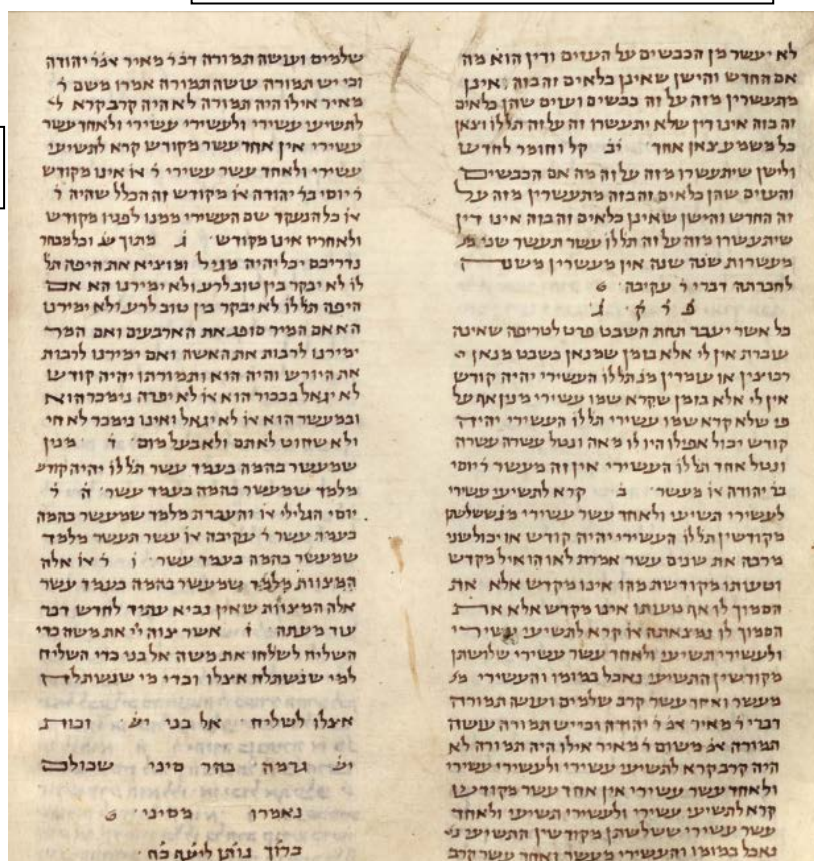 לא יעשר מן הכבשים על העזים ודין הוא מה
אם החדש והישן שאינן כלאים זה בזה אינן
מתעשרין מזה על זה כבשים ועזים שהן כלאים
זה בזה אינו דין שלא יתעשרו זה על זה תל̇ לו̇ וצאן
כל משמע צאן אחד י̇ב̇ קל וחומר לחדש
ולישן שיתעשרו מזה על זה מה אם הכבשים
והעזים שהן כלאים זה בזה מתעשרין מזה על
זה החדש והישן שאינן כלאים זה בזה אינו דין
שיתעשרו מזה על זה תל̇ לו̇ עשר תעשר שני
מעשרות שנה שנה אין מעשרין משנה
לחברתה דברי ר̇ עקיבה
פ̇ ר̇ ק̇ ג̇
כל אשר יעבר תחת השבט פרט לטריפה שאינה
עוברת אין לי אלא בזמן שמנאן בשבט מנאן
רבוצין או עומדין מנ̇ תל̇ לו̇ העשירי יהיה קודש
אין לי אלא בזמן שקרא שמו עשירי מנין אף על
פי שלא קרא שמו עשירי תל̇ לו̇ העשירי יהיה
קודש יכול אפילו היו לו מאה ונטל עשרה עשרה
ונטל אחד תל̇ לו̇ העשירי אין זה מעשר ר̇ יוסי
בר̇ יהודה או̇ מעשר ב̇ קרא לתשיעי עשירי
לעשירי תשיעי ולאחד עשר עשירי מנ̇ ששלשתן
מקודשין תל̇ לו̇ העשירי יהיה קודש או יכול שני
מרבה את שנים עשר אמרת לאו הואיל מקדש
וטעותו מקודשת מהו אינו מקדש אלא את
הסמוך לו אף טעותו אינו מקדש אלא את
הסמוך לו נמצאתה או̇ קרא לתשיעי עשירי
ולעשירי תשיעי ולאחד עשר עשירי שלושתן
מקודשין התשיעי נאכל במומו והעשירי
מעשר ואחד עשר קרב שלמים ועושה תמורה
דברי ר̇ מאיר אמ̇ ר̇ יהודה וכי יש תמורה עושה
תמורה אמ̇ משום ר̇ מאיר אילו היה תמורה לא
היה קרב קרא לתשיעי עשירי ולעשירי עשירי
ולאחד עשר עשירי אין אחד עשר מקודש
קרא לתשיעי עשירי ולעשירי תשיעי ולאחד
עשר עשירי ששלשתן מקודשין התשיעי
נאכל במומו והעשירי מעשר ואחד עשר קרב
שלמים ועושה תמורה דבר̇ מאיר אמ̇ ר̇ יהודה
וכי יש תמורה עושה תמורה אמרו משם ר̇
מאיר אילו היה תמורה לא היה קרב קרא
לתשיעי עשירי ולעשירי עשירי ולאחד עשר
עשירי אין אחד עשר מקודש קרא לתשיעי
עשירי ולאחד עשר עשירי ר̇ או̇ אינו מקודש
ר̇ יוסי בר̇ יהודה או̇ מקודש זה הכלל שהיה ר̇
או̇ כל הנעקד שם העשירי ממנו לפניו מקודש
ולאחריו אינו מקודש ג̇ מתוך ש̇נ̇ וכל מבחר
נדריכם יכל יהיה מגיל ומוציא את היפה תל̇
לו̇ לא יבקר בין טוב לרע ולא ימירנו הא אם
היפה תל̇ לו̇ לא יבקר בין טוב לרע ולא ימירנו
הא אם המיר סופג את הארבעים ואם המר
ימירנו לרבות את האשה ואם ימירנו לרבות
את היורש והיה הוא ותמורתו יהיה קודש
לא יגאל בבכור הוא או̇ לא יפדה נימכר הוא
ובמעשר הוא או̇ לא יגאל ואינו נימכר לא חי
ולא שחוט לא תם ולא בעל מום ד̇ מנין
שמעשר בהמה בעמד עשר תל̇ לו̇ יהיה קודש
מלמד שמעשר בהמה בעמד עשר ה̇ ר̇
יוסי הגלילי או̇ והעברת מלמד שמעשר בהמה
בעמד עשר ר̇ עקיבה או̇ עשר תעשר מלמד
שמעשר בהמה בעמד עשר ו̇ ר̇ או̇ אלה
המצוות מלמד שמעשר בהמה בעמד עשר
אלה המצוות שאין נביא עתיד לחדש דבר
עוד מעתה ז̇ אשר יצוה ייי את משה כדי
השליח לשלחו את משה אל בני כדי השליח
למי שנשתלח אצלו וכדי מי שנשתלח
אצלו לשליח אל בני יש̇ זכות
יש̇ גרמה בהר סיני שכולם
נאמרו מסיני
ברוך נותן ליעף כח